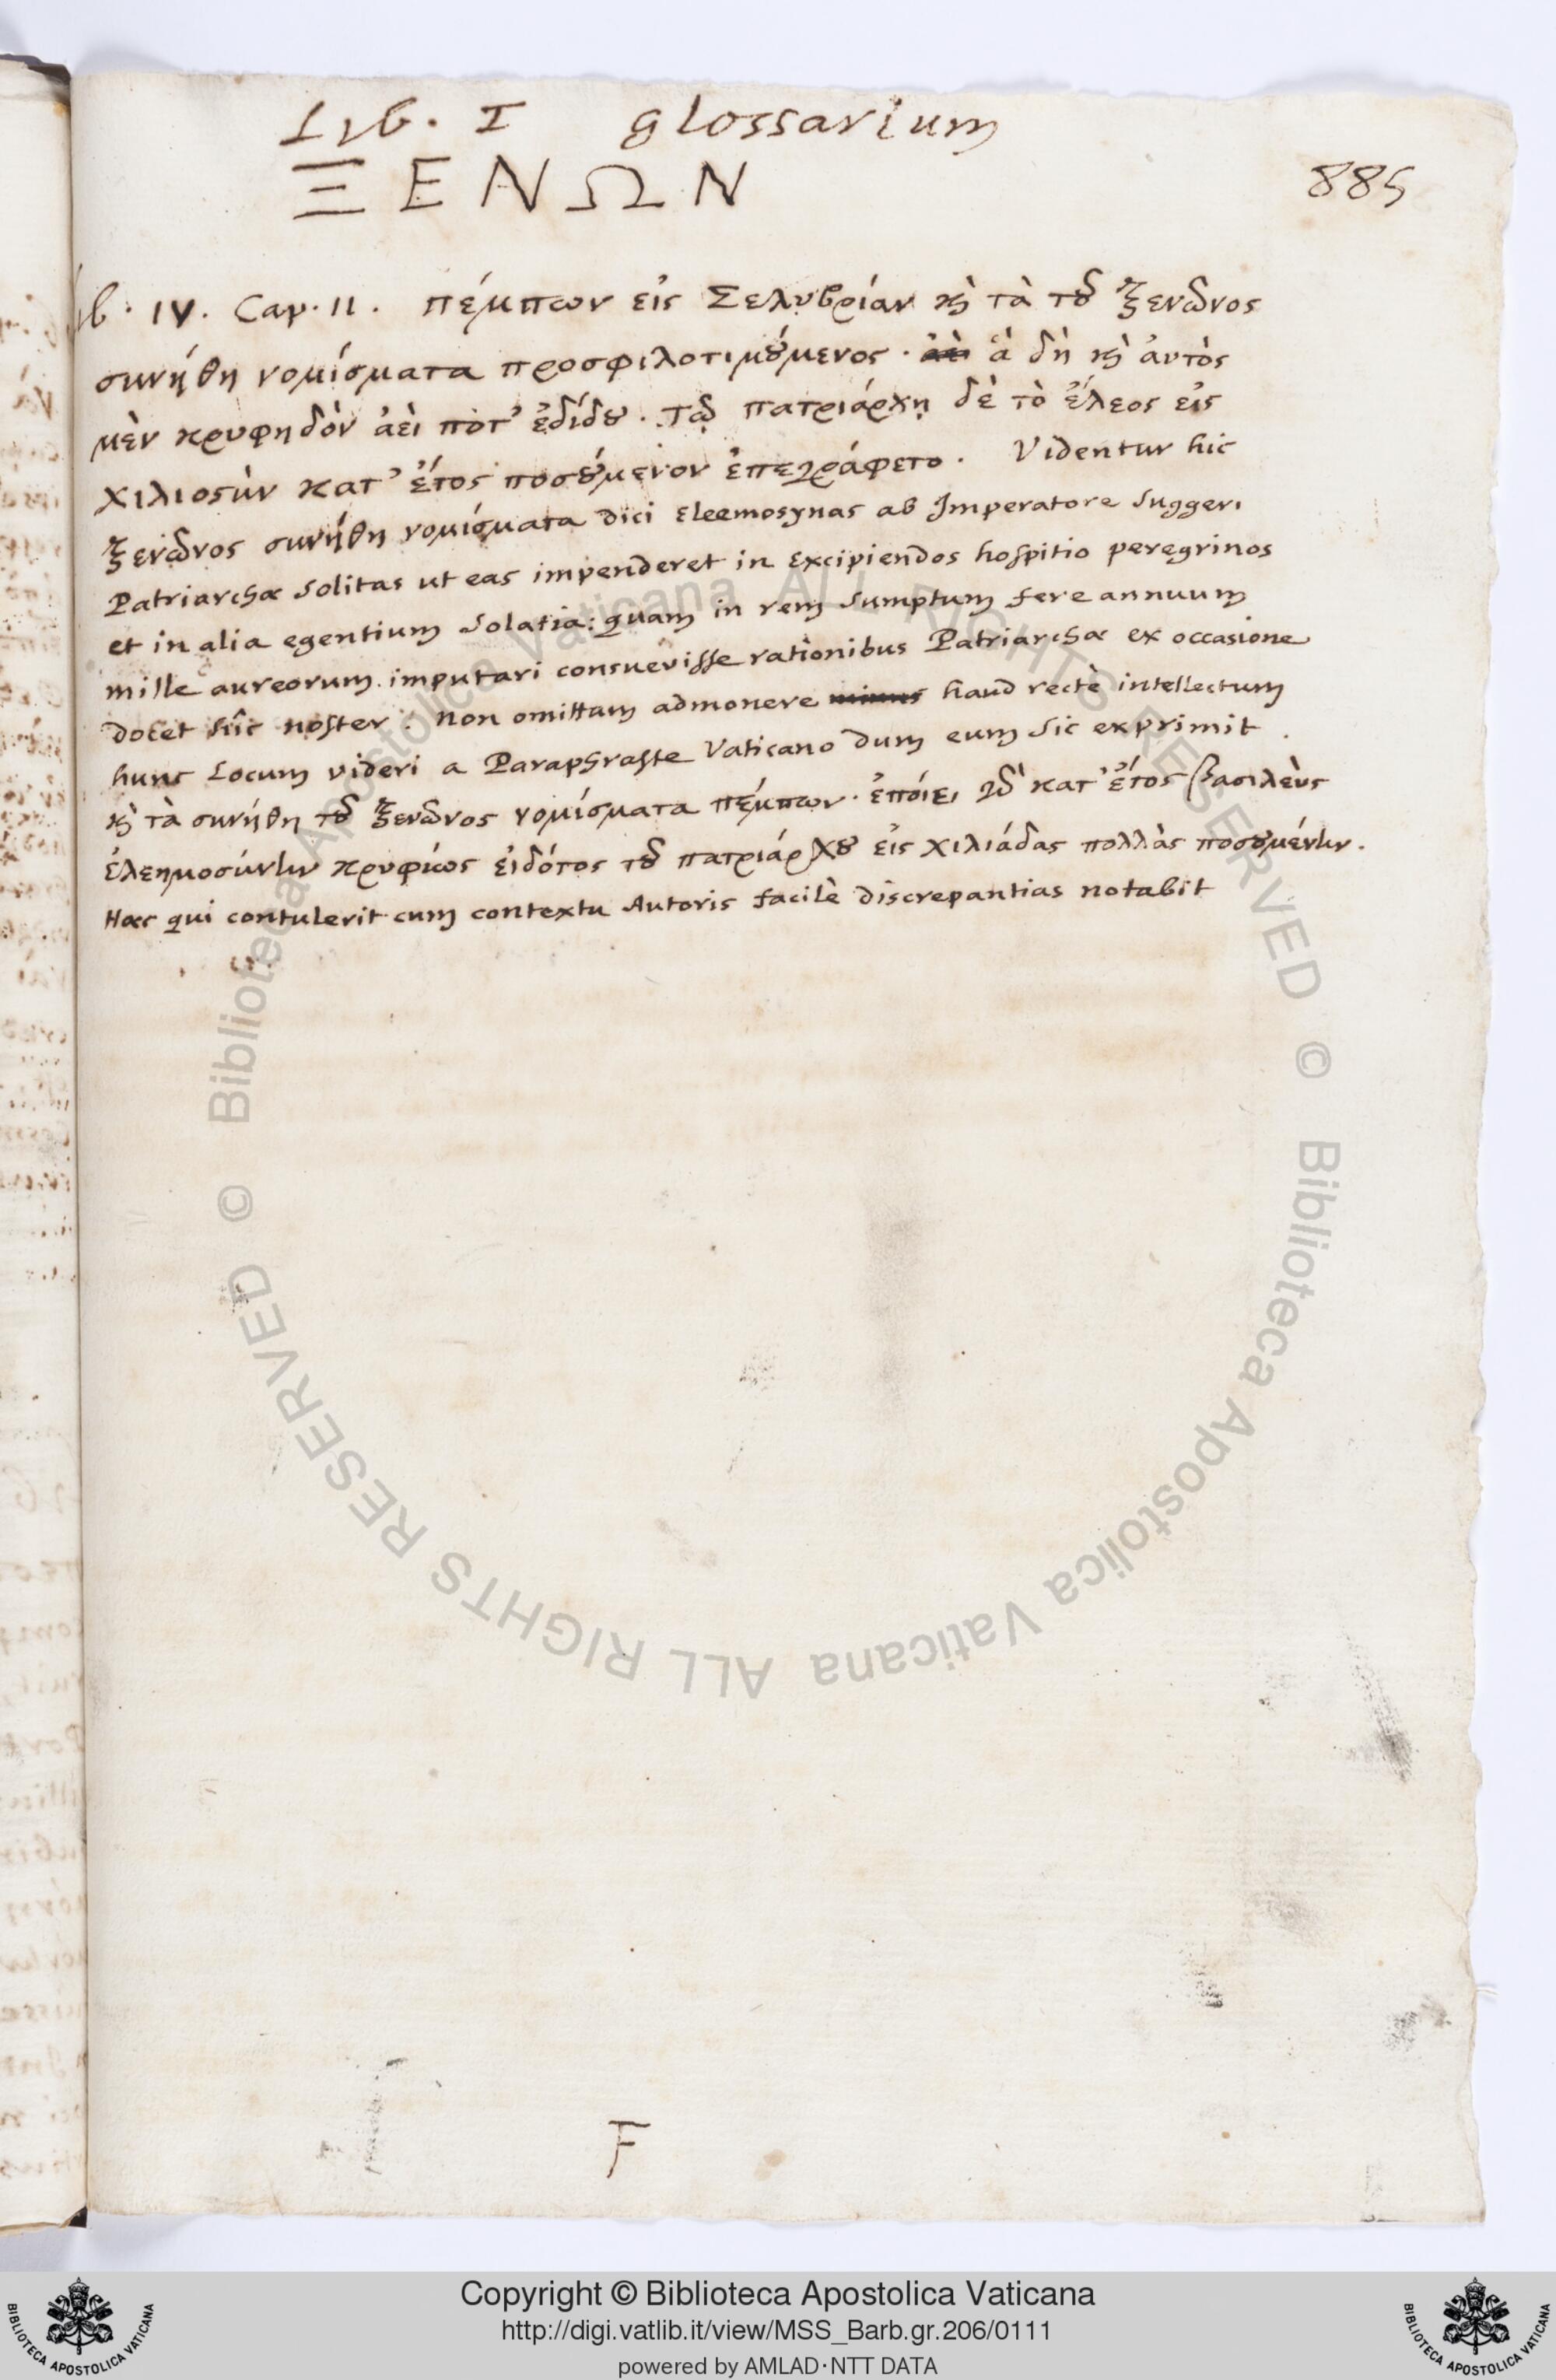 Lib. I glossarium
ΞΕΝΩΝ
885
lib. IV. Cap. II. πέμπων εἰς Σελυβρίαν κὶ τὰ τοῦ ξενῶνος
συνήθη νομίσματα προσφιλοτιμούμενος. ἃ δὴ κὶ ἀυτὸς
μὲν κρυφηδὸν ἀεὶ πὸτ' ἐδίδου. τῷ πατριάρχῃ δὲ τὸ ἔλεος εἰς
χιλιοσὺν κατ' ἔτος ποσούμενον ἐπεγράφετο. Videntur hic
ξενῶνος συνήθη νομίσματα dici Eleemosynas ab Imperatore suggeri
Patriarchæ solitas ut eas impenderet in excipiendos hospitio peregrinos
et in alia egentium solatia: quam in rem sumptum fere annuum
mille aureorum imputari consuevisse rationibus Patriarchæ ex occasione
docet hîc noster. Non omittam admonere haud rectè intellectum
hunc Locum videri a Paraphraste Vaticano dum eum sic exprimit.
κὶ τὰ συνήθη τοῦ ξενῶνος νομίσματα πέμπων. ἐποίει γὰρ κατ' ἔτος βασιλεὺς
ἐλεημοσύνην κρυφίως εἰδότος τοῦ πατριάρχου εἰς χιλιάδας πολλὰς ποσουμένην.
Hæc qui contulerit cum contextu Autoris facilè discrepantias notabit
F
© Biblioteca Apostolica Vaticana ALL RIGHTS RESERVED © Biblioteca Apostolica Vaticana ALL RIGHTS RESERVED
Copyright © Biblioteca Apostolica Vaticana
http://digi.vatlib.it/view/MSS_Barb.gr.206/0111
powered by AMLAD·NTT DATA
BIBLIOTECA APOSTOLICA VATICANA
BIBLIOTECA APOSTOLICA VATICANA